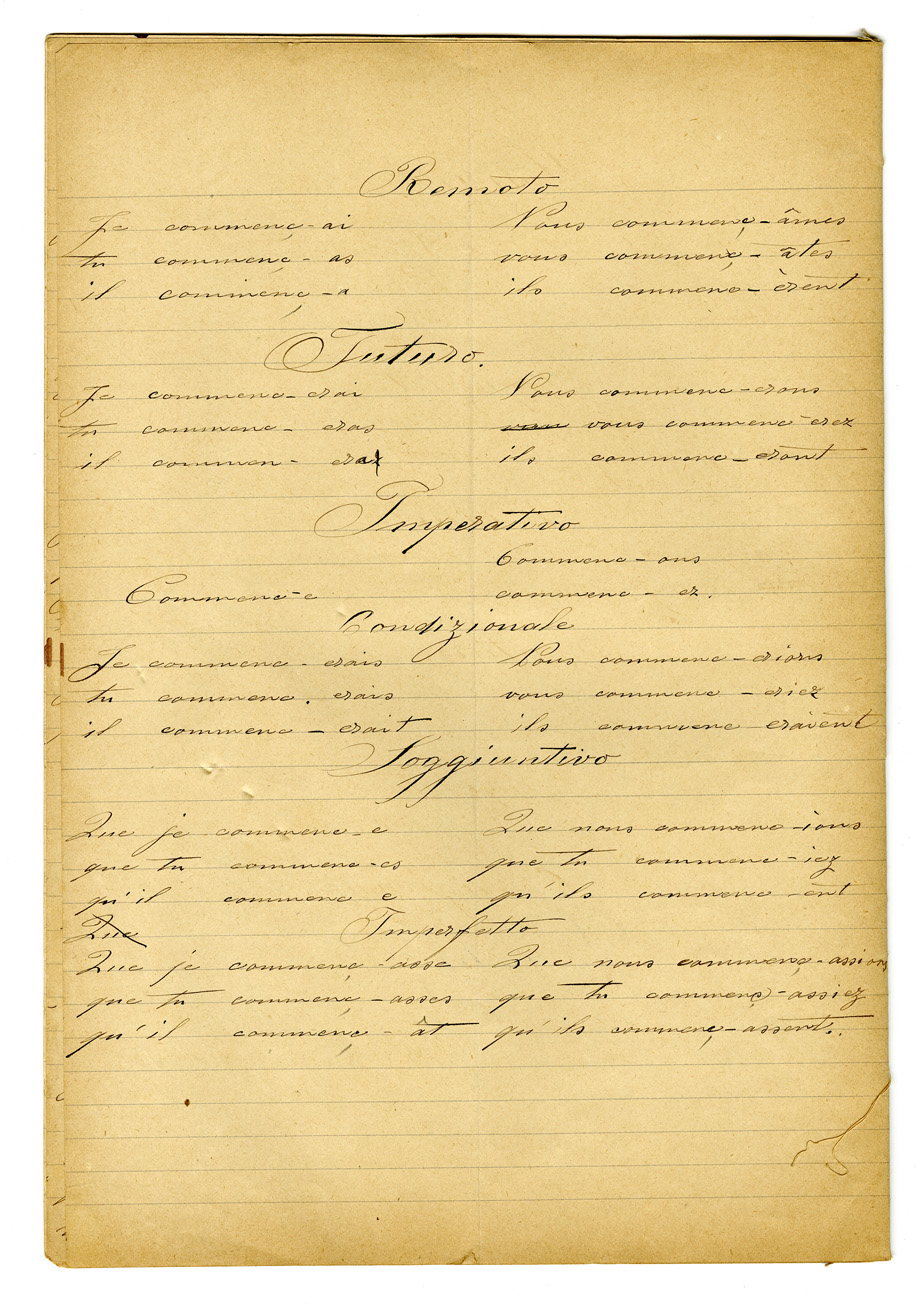 Remoto
Je commenç-ai Nous commenç-âmes
tu commenç-as vous commenç-âtes
il commenç-a ils commenc-èrent
Futuro.
Je commenc-erai Nous commenc-erons
tu commenc-eras vous commenc-erez
il commen-era ils commenc-eront
Imperativo
Commenc-ons
Commenc-e commenc-ez.
Condizionale
Je commenc-erais Nous commenc-erions
tu commenc.erais vous commenc-eriez
il commenc-erait ils commenc eraient
Soggiuntivo
Que je commenc-e Que nous commenc-ions
que tu commenc-es que tu commenc-iez
qu'il commenc e qu'ils commenc-ent
Que Imperfetto
Que je commenç-asse Que nous commenç-assions
que tu commenç-asses que tu commenç-assiez
qu'il commenç-ât qu'ils commenç-assent.